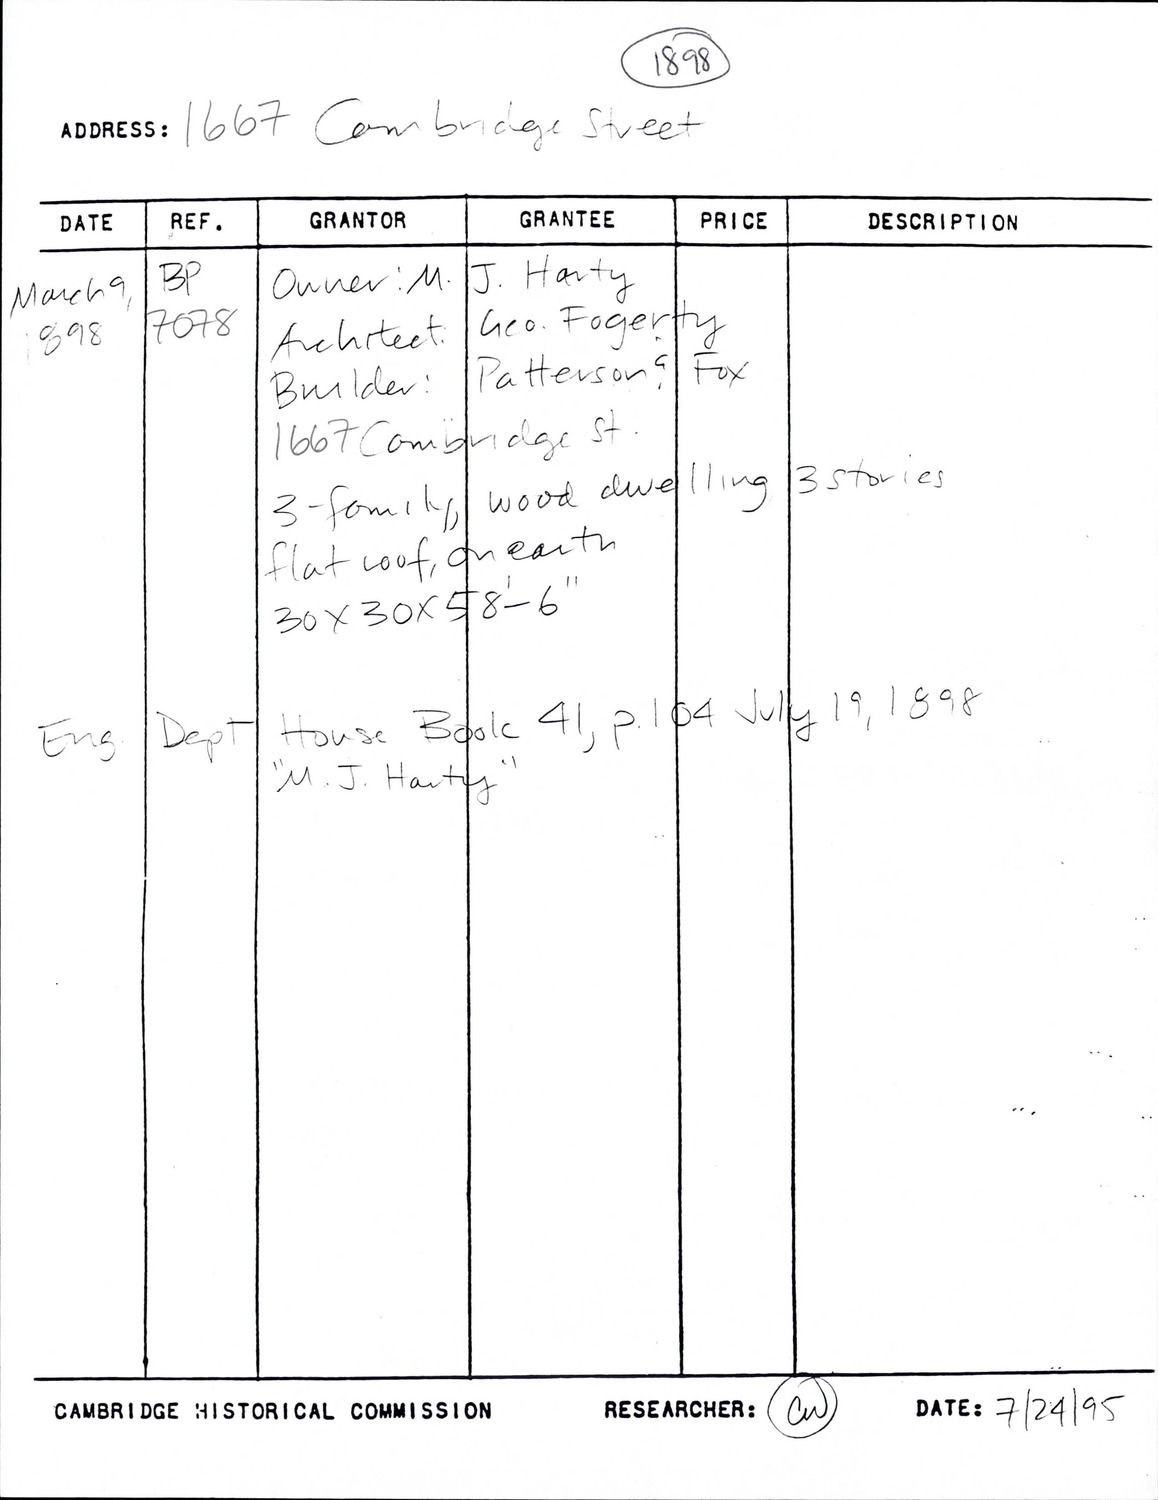 1898
ADDRESS: 1667 Cambridge Street
DATE REF. GRANTOR GRANTEE PRICE DESCRIPTION
March 9, BP Owner: M. J. Harty
1898 7078 Architect: Geo. Fogerty
Builder: Patterson & Fox
1667 Cambridge St.
3-family, wood dwelling 3 stories
flat roof, on earth
30 X 30 X 58'-6"
Eng. Dept House Book 41, p. 104 July 19, 1898
"M. J. Harty"
CAMBRIDGE HISTORICAL COMMISSION RESEARCHER: CW DATE: 7/24/95